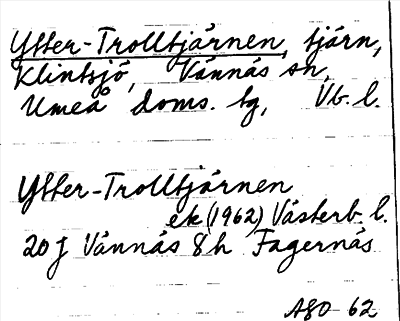 Ytter-Trolltjärnen, tjärn,
Klintsjö, Vännäs sn,
Umeå doms. tg, Vb. l.
Ytter-Trolltjärnen
ek (1962) Västerb. l.
20 J Vännäs 8h Fagernäs
ASO 62